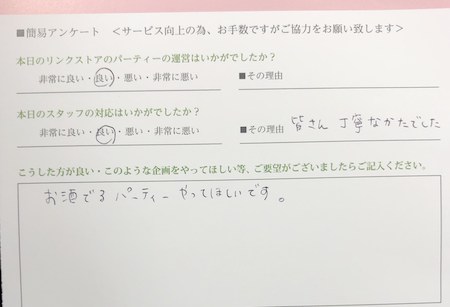 ■簡易アンケート ＜サービス向上の為、お手数ですがご協力をお願い致します＞
本日のリンクストアのパーティーの運営はいかがでしたか？
非常に良い・良い・悪い・非常に悪い ■その理由
本日のスタッフの対応はいかがでしたか？
非常に良い・良い・悪い・非常に悪い ■その理由 皆さん 丁寧なかたでした
こうした方が良い・このような企画をやってほしい等、ご要望がございましたらご記入ください。
お酒でるパーティーやってほしいです。